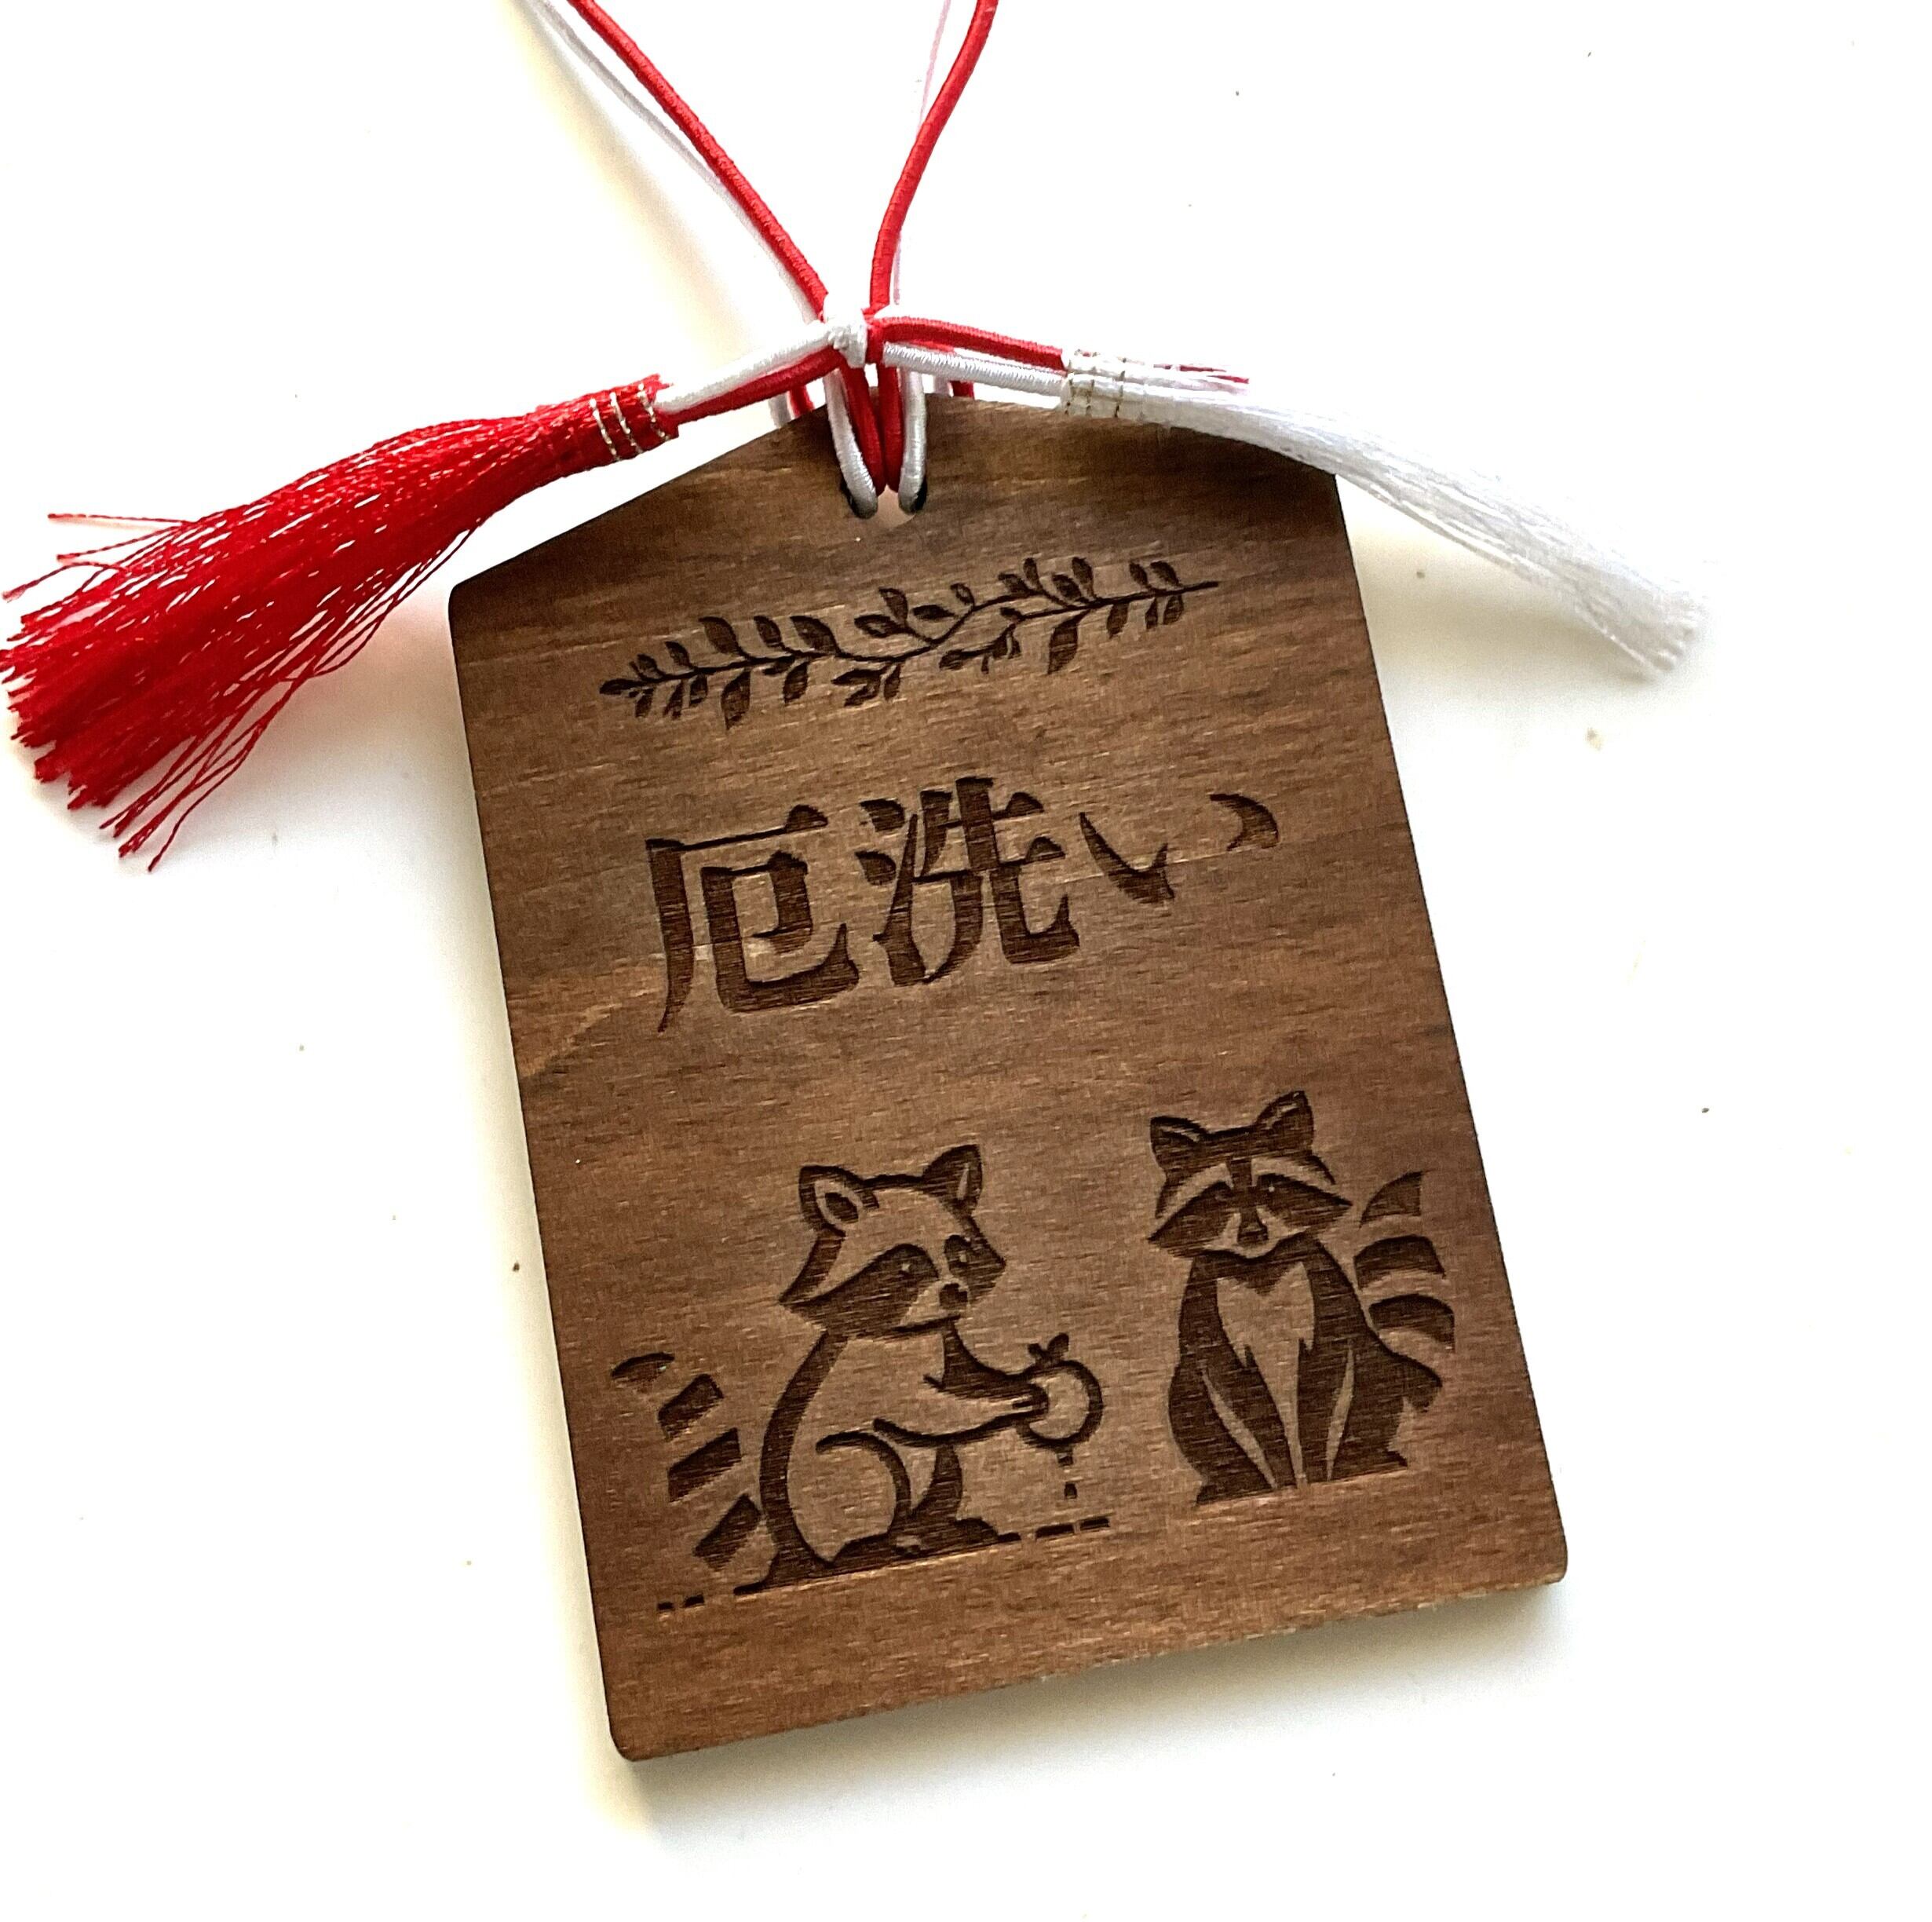 厄洗い